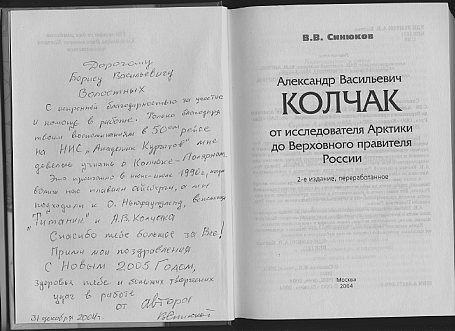 Дорогому
Борису Васильевичу
Волостных
С искренней благодарностью за участие
и помощь в работе. Только благодаря
твоим воспоминаниям в 50ом рейсе
на НИС „Академик Курчатов" мне
довелось узнать о Колчаке-Полярном.
Это произошло в июле 1990г, когда
вокруг нас плавали айсберги, а мы
подходили к О. Ньюфаундленд, вспоминая
„Титаник" и А.В. Колчака
Спасибо тебе большое за Все!
Прими мои поздравления
С Новым 2005 Годом,
здоровья тебе и больших творческих
удач в работе
от автора
31 декабря 2004г.
В.В. Синюков
Александр Васильевич
КОЛЧАК
от исследователя Арктики
до Верховного правителя
России
2-е издание, переработанное
Москва
2004